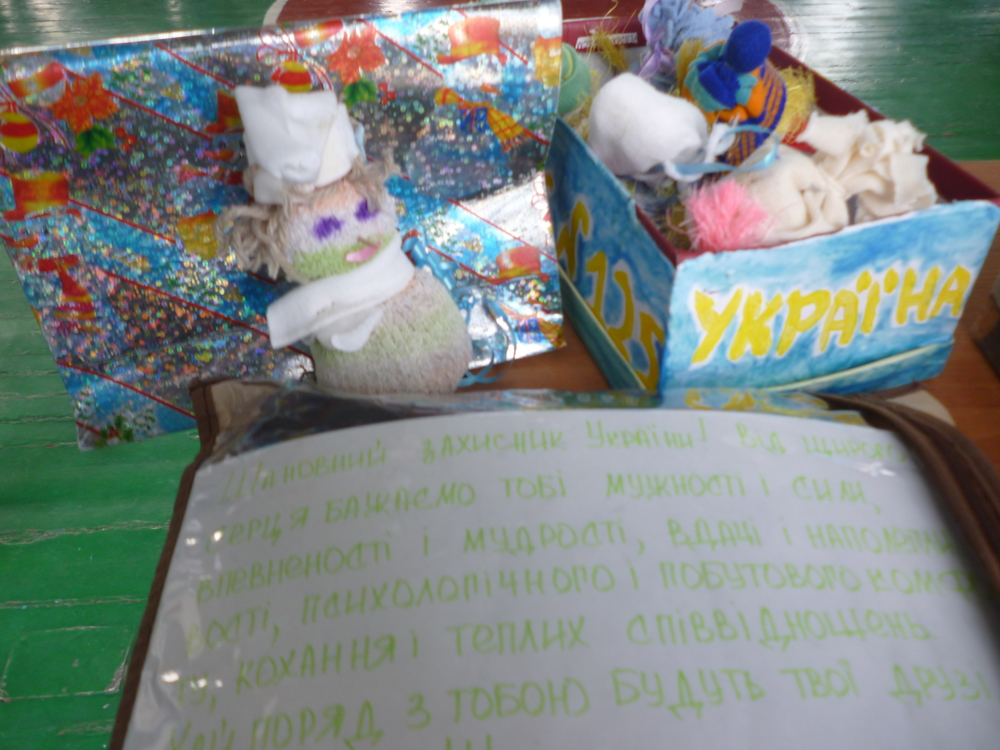 УКРАЇНА
Шановний захисник України! Від
серця бажаємо тобі мужності і сили,
впевненості і мудрості, вдачі і
вості, психологічного і побутового
ту, кохання і теплих співвідношень
хай поряд з тобою будуть твої друзі